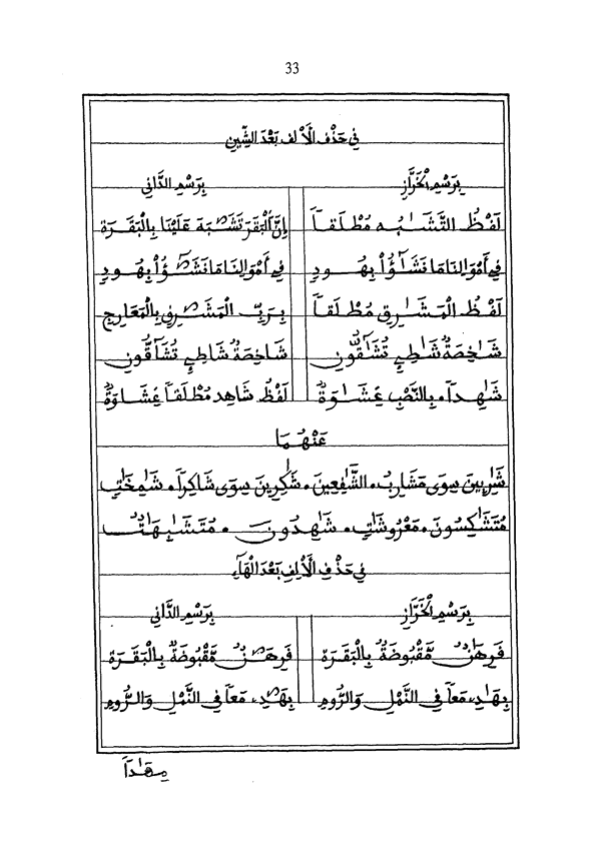 33
فِي حَذْفِ الْأَلِفِ بَعْدَ الشِّينِ
بِرَسْمِ الْخَرَّازِ بِرَسْمِ الدَّانِي
لَفْظُ التَّشَٰبُه مُطْلَقاً إِنَّ اَ۬لْبَقَرَ تَشَٰبَهَ عَلَيْنَا بِالْبَقَرَةِ
فِي أَمْوَالِنَا مَا نَشَٰٓؤُاْ بِهُودٍ فِي أَمْوَالِنَا مَا نَشَٰٓؤُاْ بِهُودٍ
لَفْظُ الْمَشَٰرِقِ مُطْلَقاً بِرَبِّ الْمَشَٰرِقِ بِالْمَعَارِجِ
شَٰخِصَةٌ شَٰطِئِ تُشَٰٓقُّونَ شَاخِصَةٌ شَاطِئِ تُشَآقُّونَ
شَٰهِداً بِالنَّصْبِ غِشَٰوَةٌ لَفْظُ شَاهِد مُطْلَقاً غِشَاوَةٌ
عَنْهُمَا
شَٰرِبِينَ سِوَى مَشَارِبُ، الشَّٰفِعِينَ، شَٰكِرِينَ سِوَى شَاكِراً، شَٰمِخَٰتٍ
مُتَشَٰكِسُونَ، مَعْرُوشَٰتٍ، شَٰهِدُونَ، مُتَشَٰبِهَٰتٌ
فِي حَذْفِ الْأَلِفِ بَعْدَ الْهَاءِ
بِرَسْمِ الْخَرَّازِ بِرَسْمِ الدَّانِي
فَرِهَٰنٌ مَّقْبُوضَةٌ بِالْبَقَرَةِ فَرِهَٰنٌ مَّقْبُوضَةٌ بِالْبَقَرَةِ
بِهَٰدِ، مَعاً فِي النَّمْلِ وَالرُّومِ بِهَٰدِ، مَعاً فِي النَّمْلِ وَالرُّومِ
مِهَٰداً